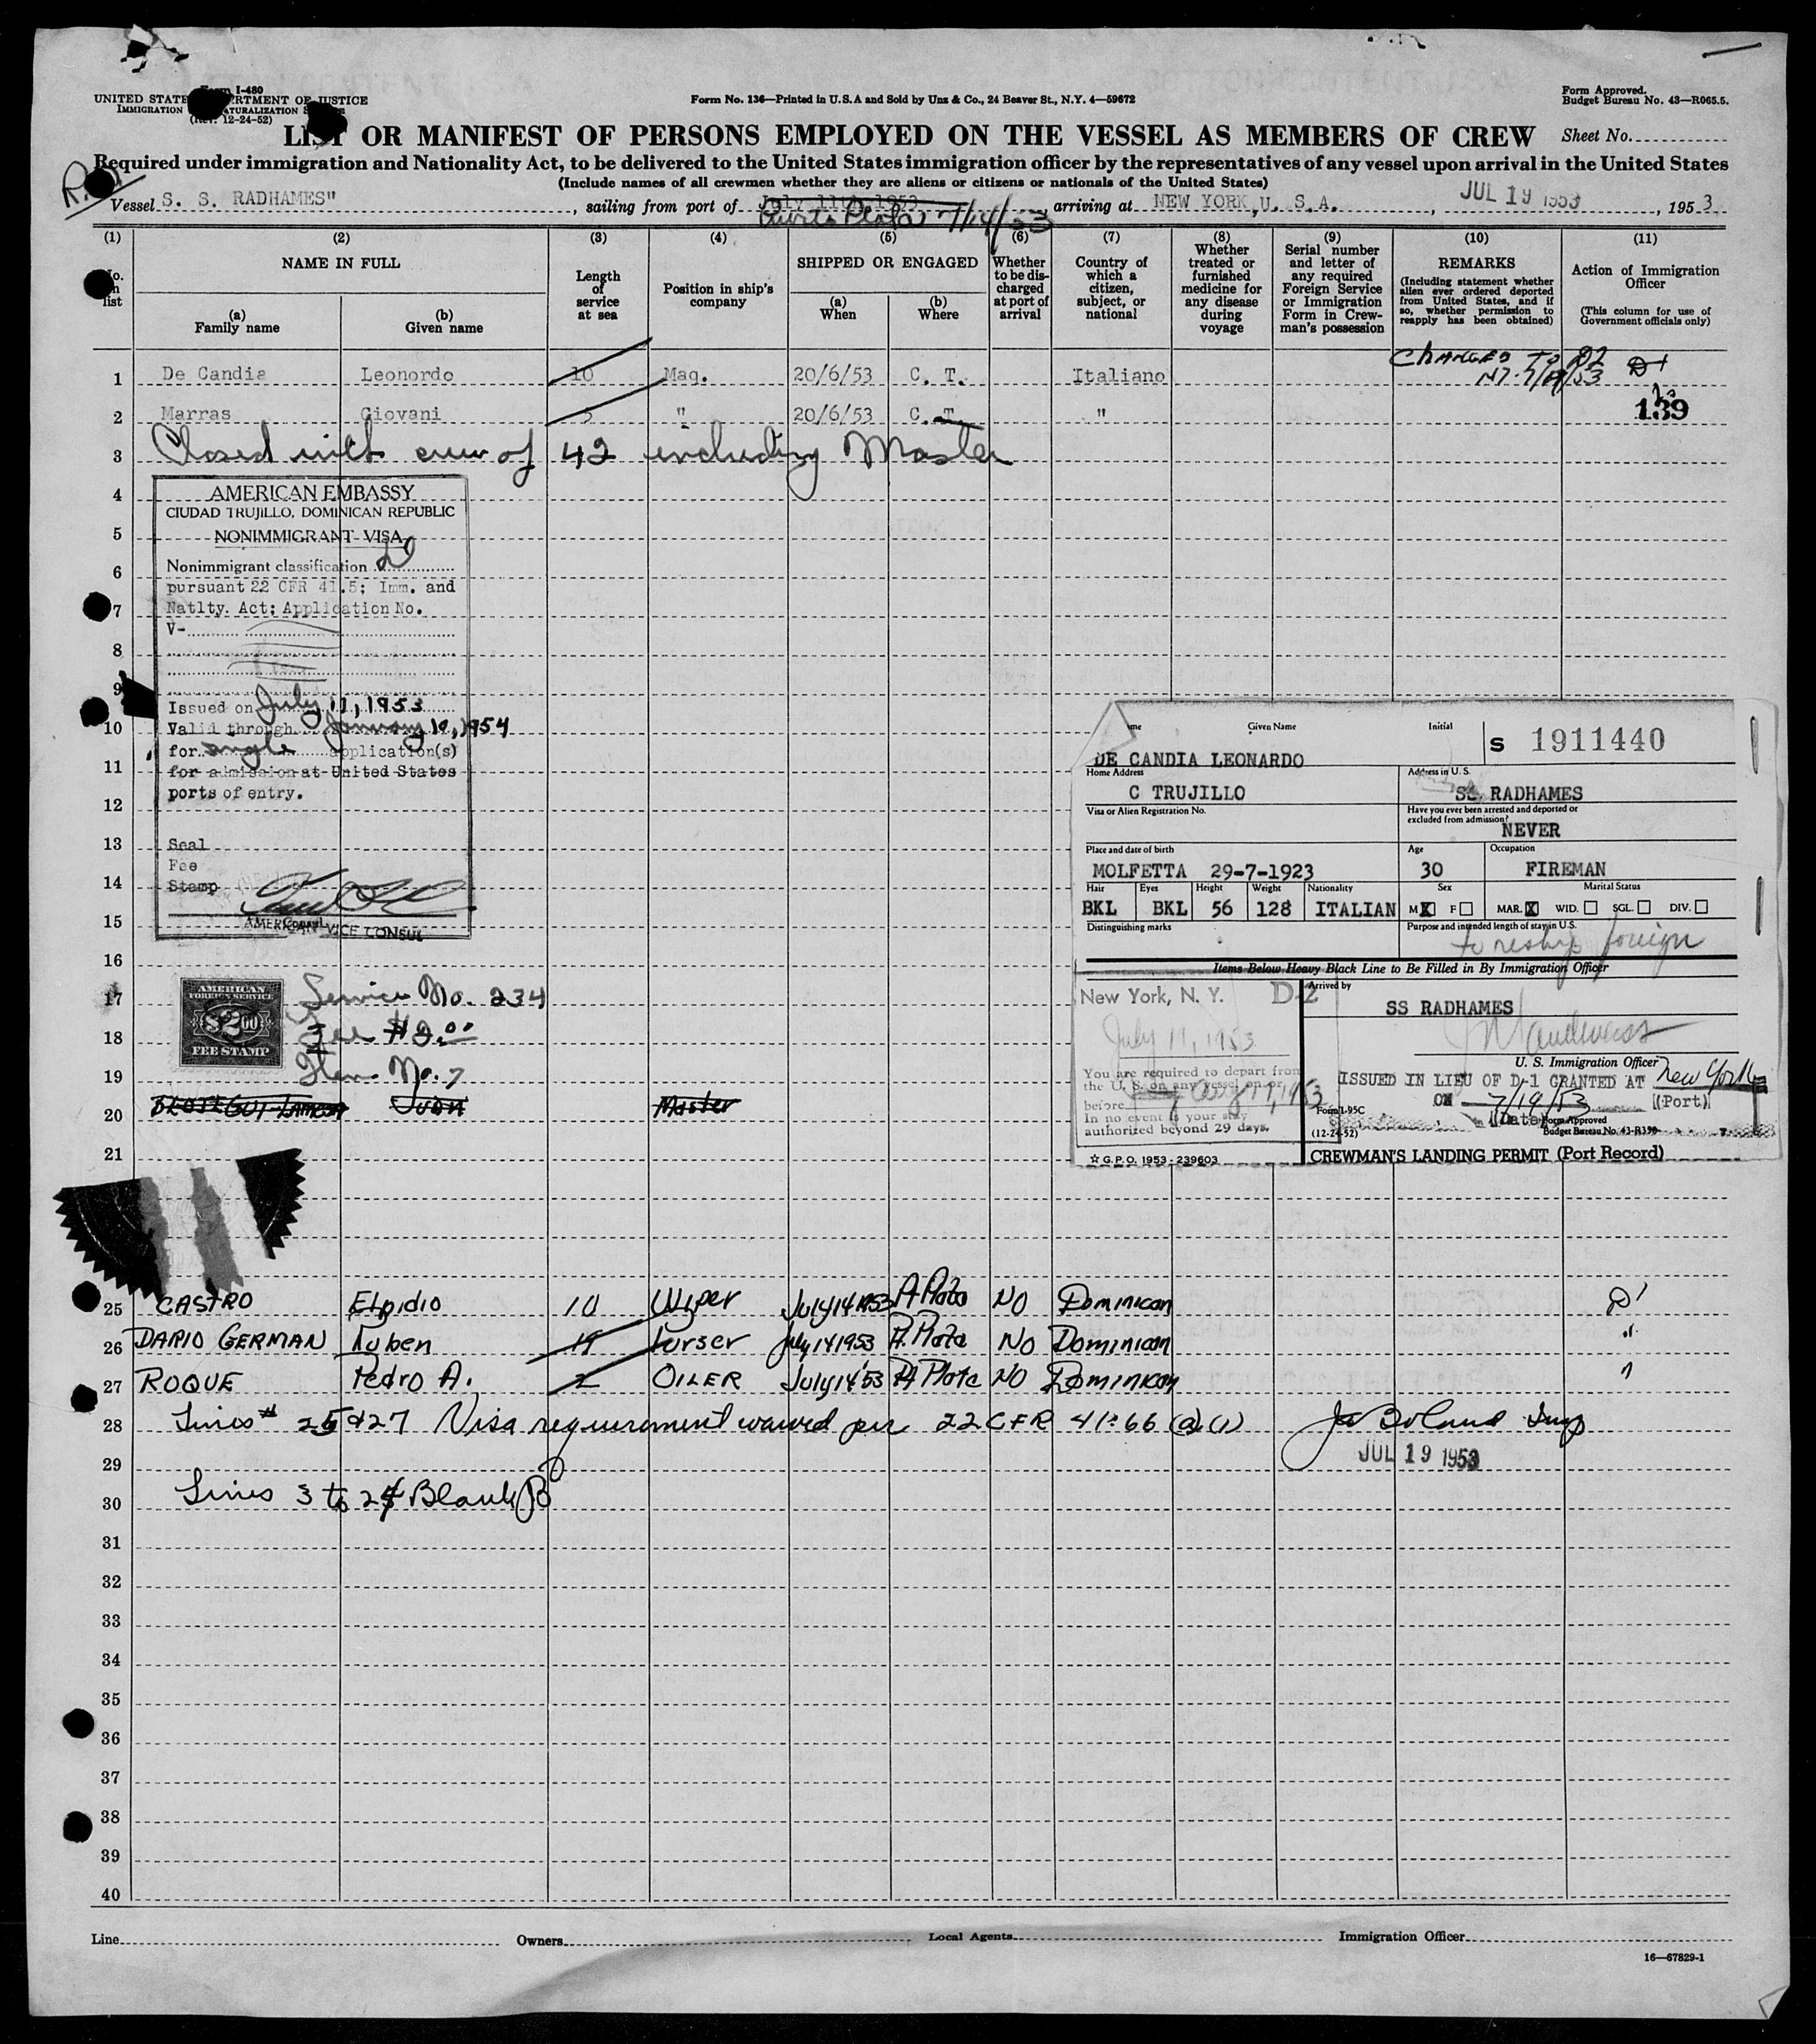 Form I-480
UNITED STATE RTMENT OF JUSTICE
IMMIGRATION ATURALIZATION S
(Rev. 12-24-52)
Form No. 136—Printed in U.S.A and Sold by Unz & Co., 24 Beaver St., N.Y. 4—59672
Form Approved.
Budget Bureau No. 43—R065.5.
LIST OR MANIFEST OF PERSONS EMPLOYED ON THE VESSEL AS MEMBERS OF CREW
Sheet No.
Required under immigration and Nationality Act, to be delivered to the United States immigration officer by the representatives of any vessel upon arrival in the United States
(Include names of all crewmen whether they are aliens or citizens or nationals of the United States)
Vessel S. S. RADHAMES", sailing from port of July 11th, 1953, arriving at NEW YORK, U. S. A., JUL 19 1953, 1953
Puerto Plata 7/14/53
(1) (2) (3) (4) (5) (6) (7) (8) (9) (10) (11)
No. in list
NAME IN FULL
(a) Family name
(b) Given name
Length of service at sea
Position in ship's company
SHIPPED OR ENGAGED
(a) When
(b) Where
Whether to be discharged at port of arrival
Country of which a citizen, subject, or national
Whether treated or furnished medicine for any disease during voyage
Serial number and letter of any required Foreign Service or Immigration Form in Crewman's possession
REMARKS
(Including statement whether alien ever ordered deported from United States, and if so, whether permission to reapply has been obtained)
Action of Immigration Officer
(This column for use of Government officials only)
CHANGED TO D2
NY 7/19/53
1 De Candia Leonordo 10 Maq. 20/6/53 C. T. Italiano D1
2 Marras Giovani 5 " 20/6/53 C. T. " 139
3 Closed with crew of 42 including Master
4
5
6
7
8
9
10
11
12
13
14
15
16
17
18
19
AMERICAN EMBASSY
CIUDAD TRUJILLO, DOMINICAN REPUBLIC
NONIMMIGRANT VISA
Nonimmigrant classification D
pursuant 22 CFR 41.5; Imm. and
Natlty. Act; Application No.
V-
Issued on July 11, 1953
Valid through January 10, 1954
for single application(s)
for admission at United States
ports of entry.
Seal
Fee
Stamp
Consul
AMERICAN VICE CONSUL
AMERICAN
FOREIGN SERVICE
$2.00
FEE STAMP
Service No. 234
Fee $2.00
Item No. 7
20 Juan Master
21
Given Name
Initial
S 1911440
DE CANDIA LEONARDO
Home Address
C TRUJILLO
Address in U. S.
SS. RADHAMES
Visa or Alien Registration No.
Have you ever been arrested and deported or excluded from admission?
NEVER
Place and date of birth
MOLFETTA 29-7-1923
Age
30
Occupation
FIREMAN
Hair
BKL
Eyes
BKL
Height
56
Weight
128
Nationality
ITALIAN
Sex
M X F
Marital Status
MAR. X WID. SGL. DIV.
Distinguishing marks
Purpose and intended length of stay in U.S.
to reship foreign
Items Below Heavy Black Line to Be Filled in By Immigration Officer
New York, N. Y. D-2
July 19, 1953
You are required to depart from
the U. S. on any vessel on or
before Aug 17, 1953
In no event is your stay
authorized beyond 29 days.
☆ G.P.O. 1953 - 239603
Arrived by
SS RADHAMES
U. S. Immigration Officer
ISSUED IN LIEU OF D-1 GRANTED AT New York
ON 7/19/53 (Port)
(Date)
Form I-95C
(12-24-52)
Form Approved
Budget Bureau No. 43-R350
CREWMAN'S LANDING PERMIT (Port Record)
25 CASTRO Elpidio 10 Wiper July 14 1953 P. Plata NO Dominican D1
26 DARIO GERMAN Ruben 19 Purser July 14 1953 P. Plata NO Dominican "
27 ROQUE Pedro A. 2 OILER July 14 '53 P. Plata NO Dominican "
28 Lines # 25 & 27 Visa requirement waived per 22 CFR 41.66 (a) (1) Boland Insp
29 JUL 19 1953
30 Lines 3 to 24 Blank
31
32
33
34
35
36
37
38
39
40
Line Owners Local Agents Immigration Officer
16—67829-1